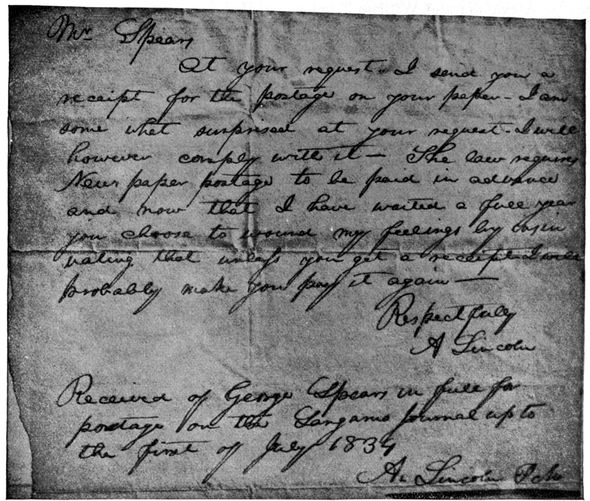 Mr Spears
At your request I send you a
receipt for the postage on your paper - I am
some what surprised at your request - I will
however comply with it - The law requires
News paper postage to be paid in advance
and now that I have waited a full year
you choose to wound my feelings by insin
uating that unless you get a receipt I will
probably make you pay it again -
Respectfully
A Lincoln
Received of George Spears in full for
postage on the Sangamo Journal up to
the first of July 1834
A. Lincoln P.M.